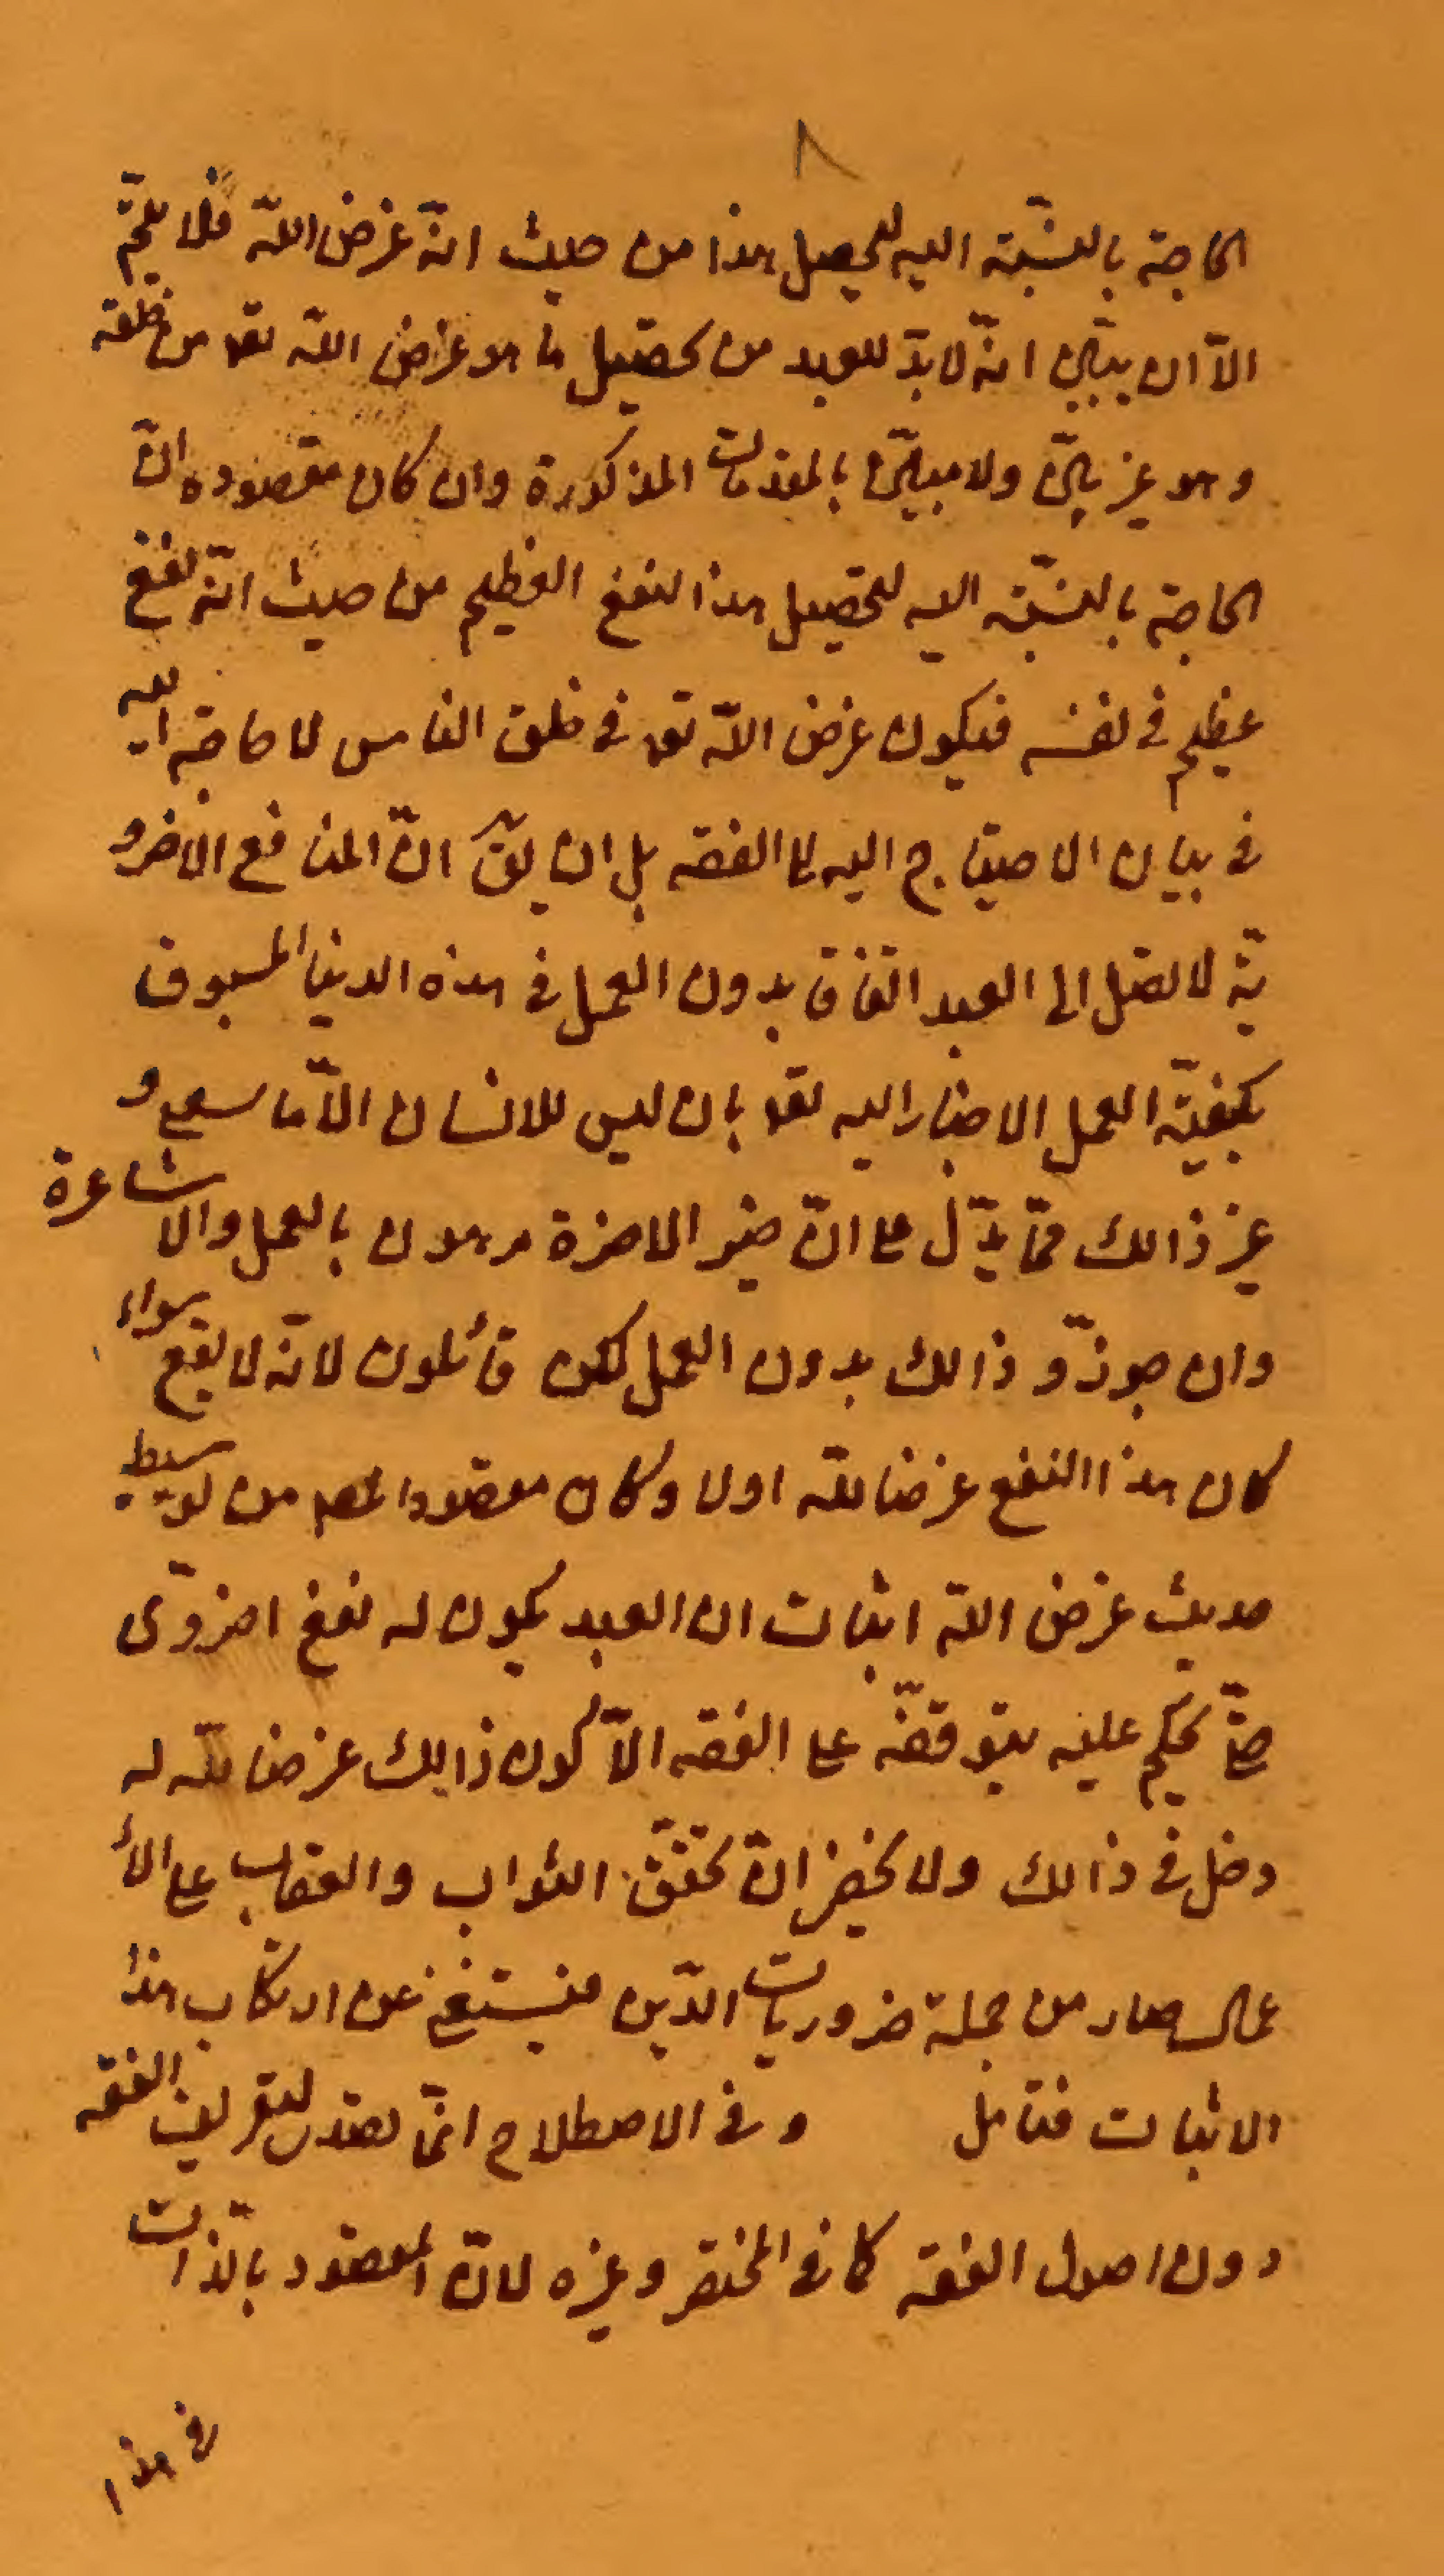 ٨
الحاجة بالنسّبة اليه لتحصيل هذا من حيث انّه غرض اللّه فلا يتمّ
الّا ان يبيّن انّه لا بدّ للعبد من تحصيل ما هو غرض اللّه تعو من خلقه
و هو غير بيّن ولا مبيّن بالمقدمات المذكورة وان كان مقصوده انّ
الحاجة بالنسّبة اليه لتحصيل هذا النفع العظيم من حيث انّه نفع
عظيم في نفسه فيكون غرض اللّه تعو في خلق الناس لا حاجة اليه
في بيان الاحتياج اليه الى الفقه بل ان يقّ انّ المنافع الاخرو
يّة لا تصل الى العبد اتفاق بدون العمل في هذه الدنيا المسبوق
بكيفيّة العمل الاخبار اليه تعو بان ليس للانسان الّا ما سعى و
غير ذالك ممّا يدّل على انّ خير الاخرة مرهون بالعمل والاشاعرة
وان جوزّو ذالك بدون العمل لكن قائلون لانّه لا يقع سواء
كان هذا النفع غرضا للّه اولا وكان مقصود المصم من توسيط
حديث غرض اللّه اثبات ان العبد يكون له نفع اخروّى
حتّى يحكم عليه بتوقفه على الفقه الّا كون ذالك غرضا للّه له
دخل في ذالك ولا يخفى انّ تحقّق الثواب والعقاب على الأ
عمال صار من جملة ضروريات الدّين فيستغنى عن ارتكاب هذا
الاثبات فتامل و في الاصطلاح انّما تصدى لتعريف الفقه
دون اصول الفقه كما في المختصر وغيره لانّ المقصود بالذّات
في هذا